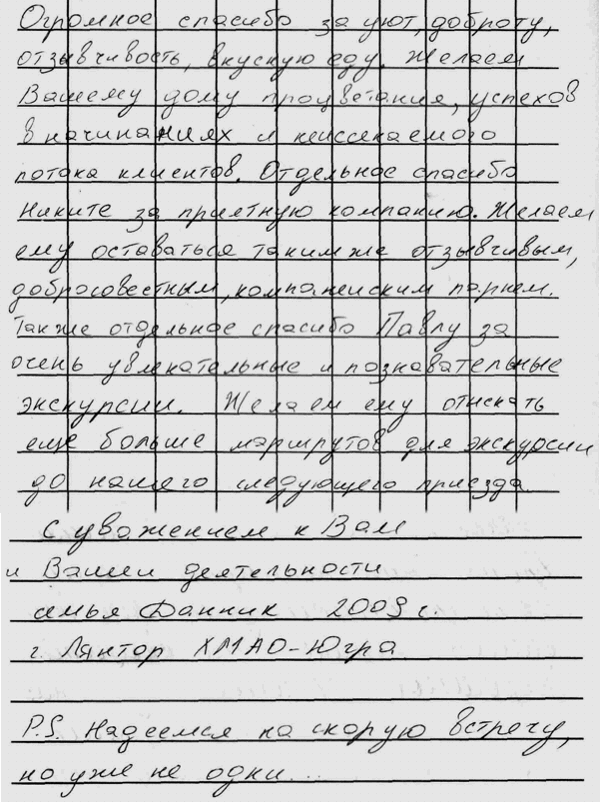 Огромное спасибо за уют, доброту,
отзывчивость, вкусную еду. Желаем
Вашему дому процветания, успехов
в начинаниях и неиссекаемого
потока клиентов. Отдельное спасибо
Никите за приятную компанию. Желаем
ему оставаться таким же отзывчивым,
добросовестным, компанейским парнем.
Также отдельное спасибо Павлу за
очень увлекательные и познавательные
экскурсии. Желаем ему отискать
еще больше маршрутов для экскурсии
до нашего следующего приезда.
С уважением к Вам
и Вашей деятельности
семья Данник 2009 г.
г. Лянтор ХМАО-Югра
P.S. Надеемся на скорую встречу,
но уже не одни...